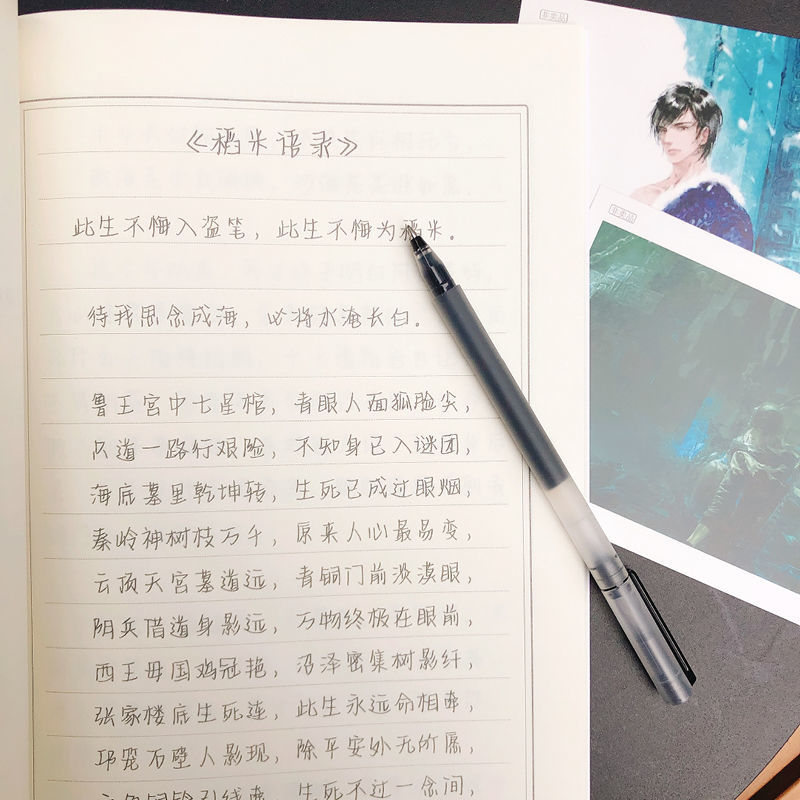 《稻米语录》
此生不悔入盗笔，此生不悔为稻米。
待我思念成海，必将水淹长白。
鲁王宫中七星棺，青眼人面狐脸尖，
只道一路行艰险，不知身已入谜团，
海底墓里乾坤转，生死已成过眼烟，
秦岭神树枝万千，原来人心最易变，
云顶天宫墓道远，青铜门前淡漠眼，
阴兵借道身影远，万物终极在眼前，
西王母国鸡冠艳，沼泽密集树影纤，
张家楼底生死连，此生永远命相牵，
邛笼石壁人影现，除平安外无所愿，
六角铜铃引线牵，生死不过一念间，
非卖品
非卖品